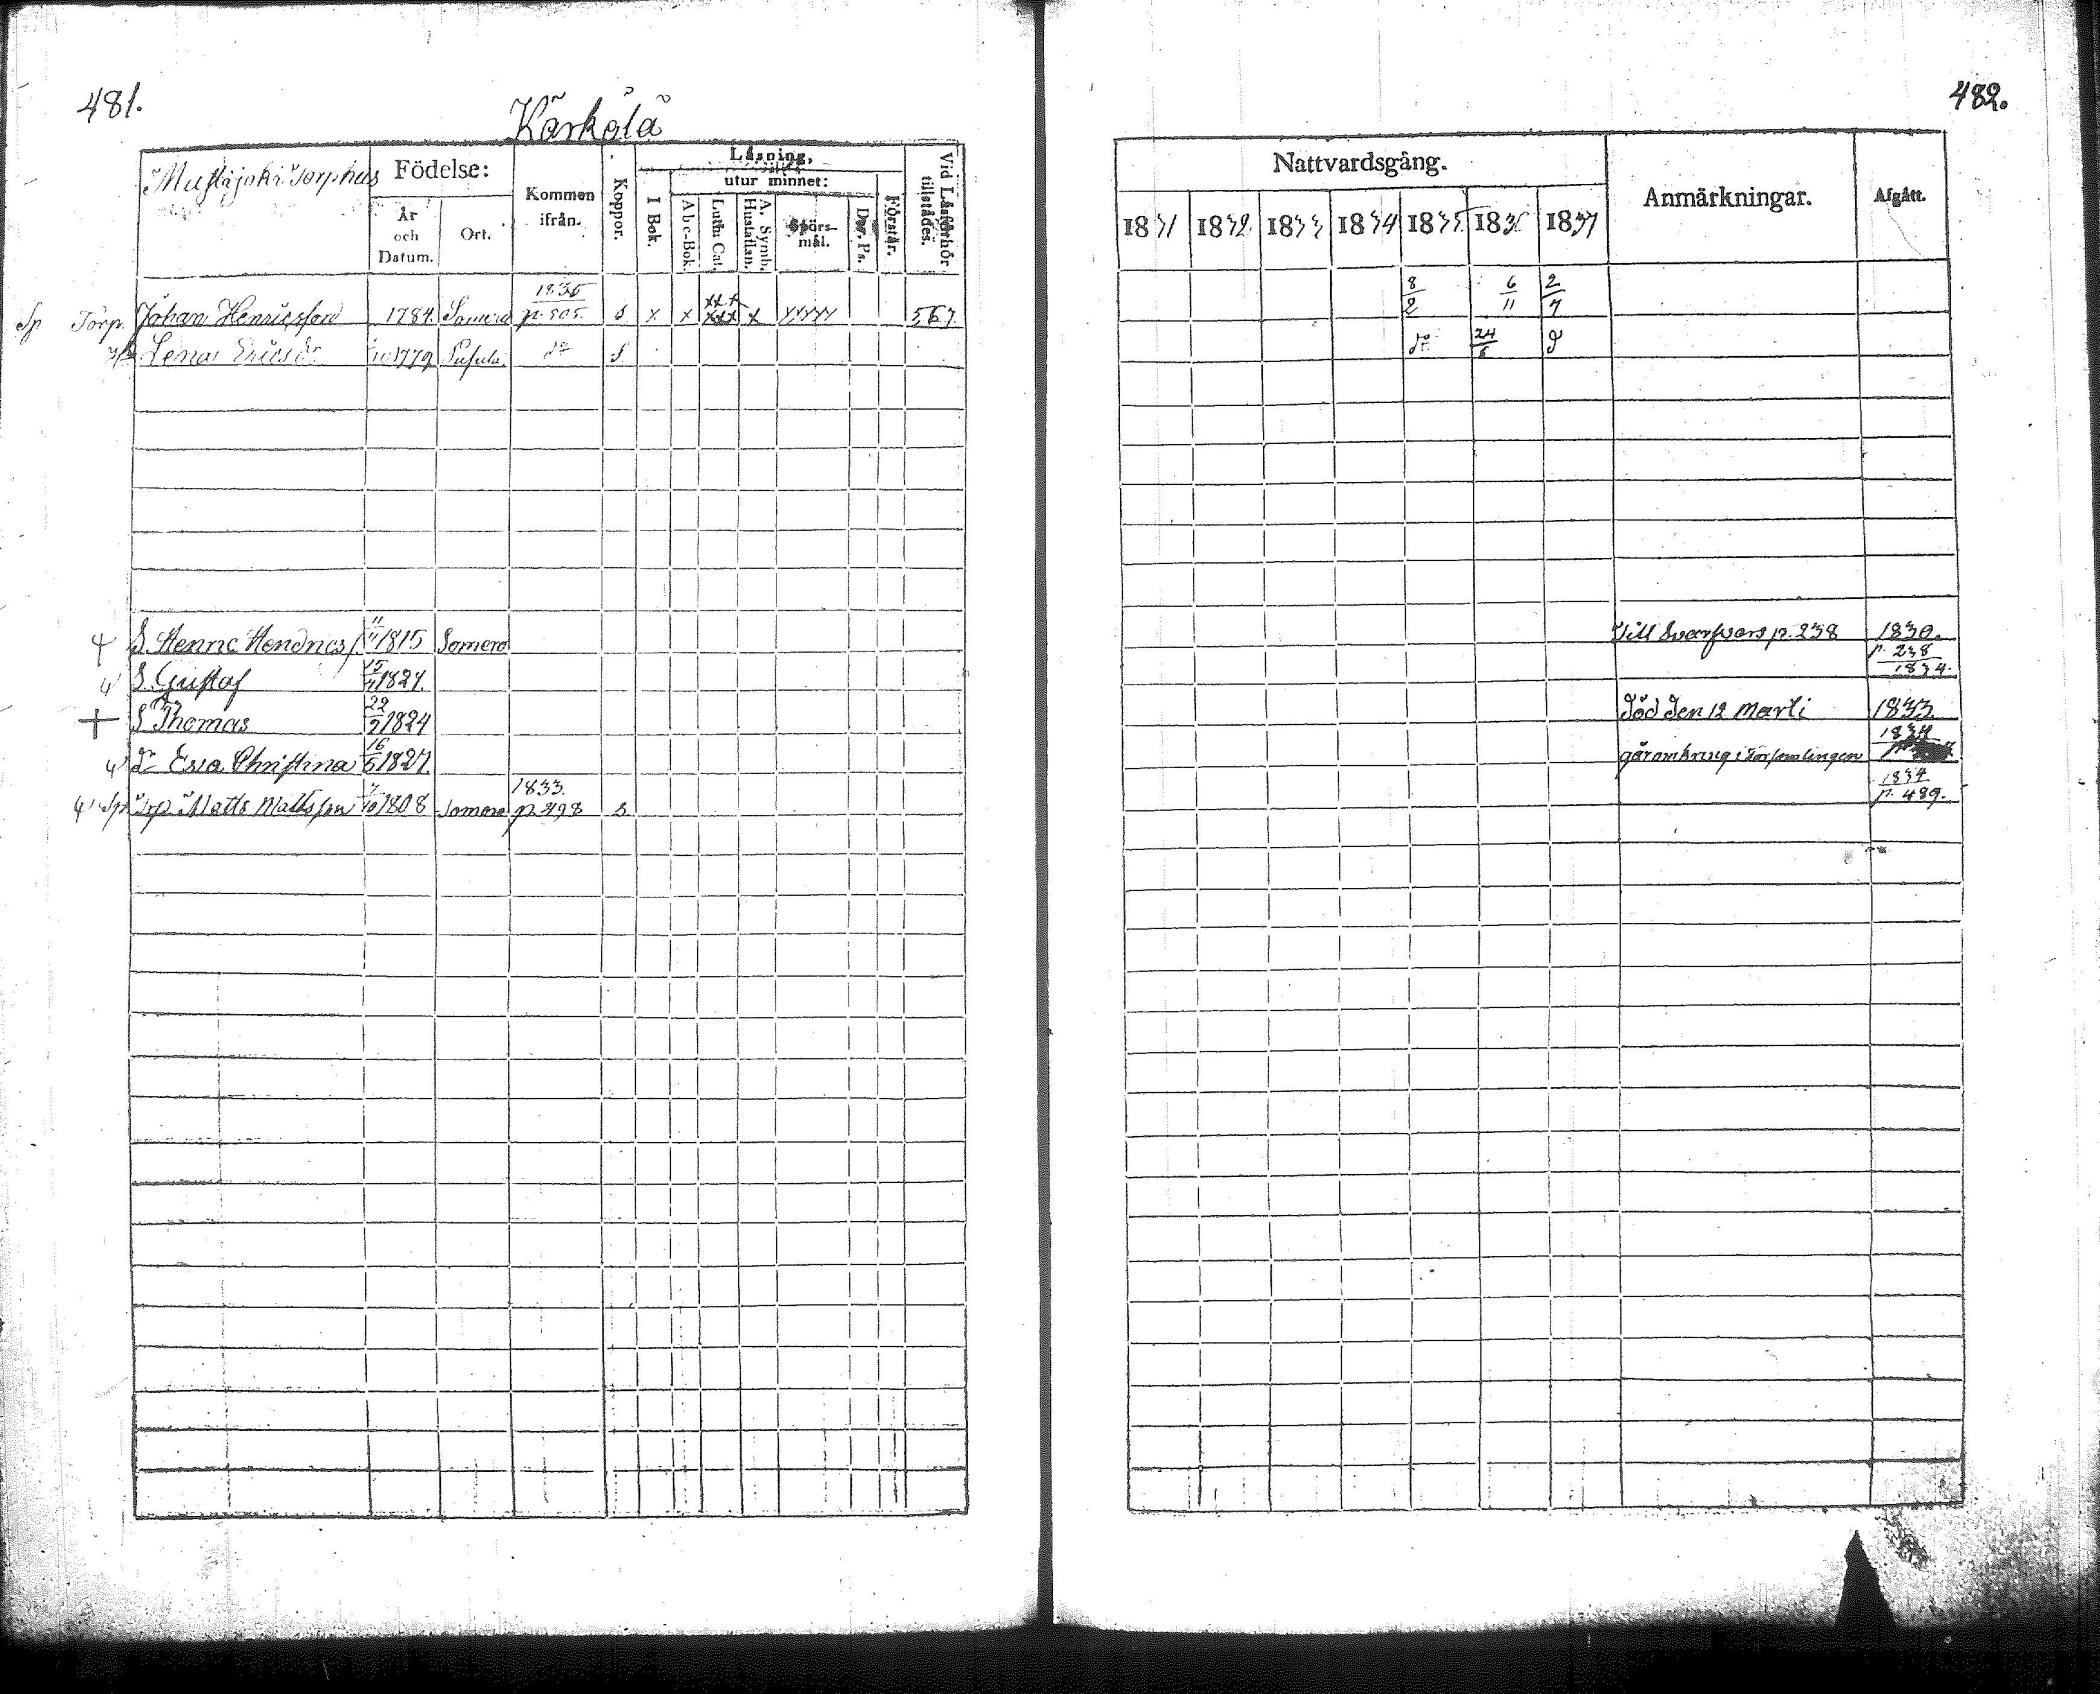 481.
Kärkälä
Mustajoki Torphus
Födelse:
År och Datum.
Ort.
Kommen ifrån.
Koppor.
Läsning,
I Bok.
utur minnet:
Abc-Bok.
Luth. Cat.
A. Symb. Hustaflan.
Spörs-mål.
Dav. Ps.
Förstår.
Vid Läsförhör tillstädes.
Sp Torp. Johan Henricsson 1784. Somero 1835 p. 505. s x x xxx xxx x xxxxx 5.6.7.
Lena Ericsdr 1779 Pusula do s
S. Henric Hendricss 11/11 1815 Somero
S. Gustaf 1821.
+ S Thomas 22/9 1824
Dr Eva Christina 16/5 1827.
Sp Trp Matts Mattsson 1808 Somero 1833. p. 498 s
482.
Nattvardsgång.
1831 1832 1833 1834 1835 1836 1837
Anmärkningar.
Afgått.
8/2 6/11 2/7
do 24/6
Till Svarfvars p. 238 1830.
p. 238 1834.
Död den 12 Marti 1833
går omkring i Församlingen 1834
1834 p. 489.